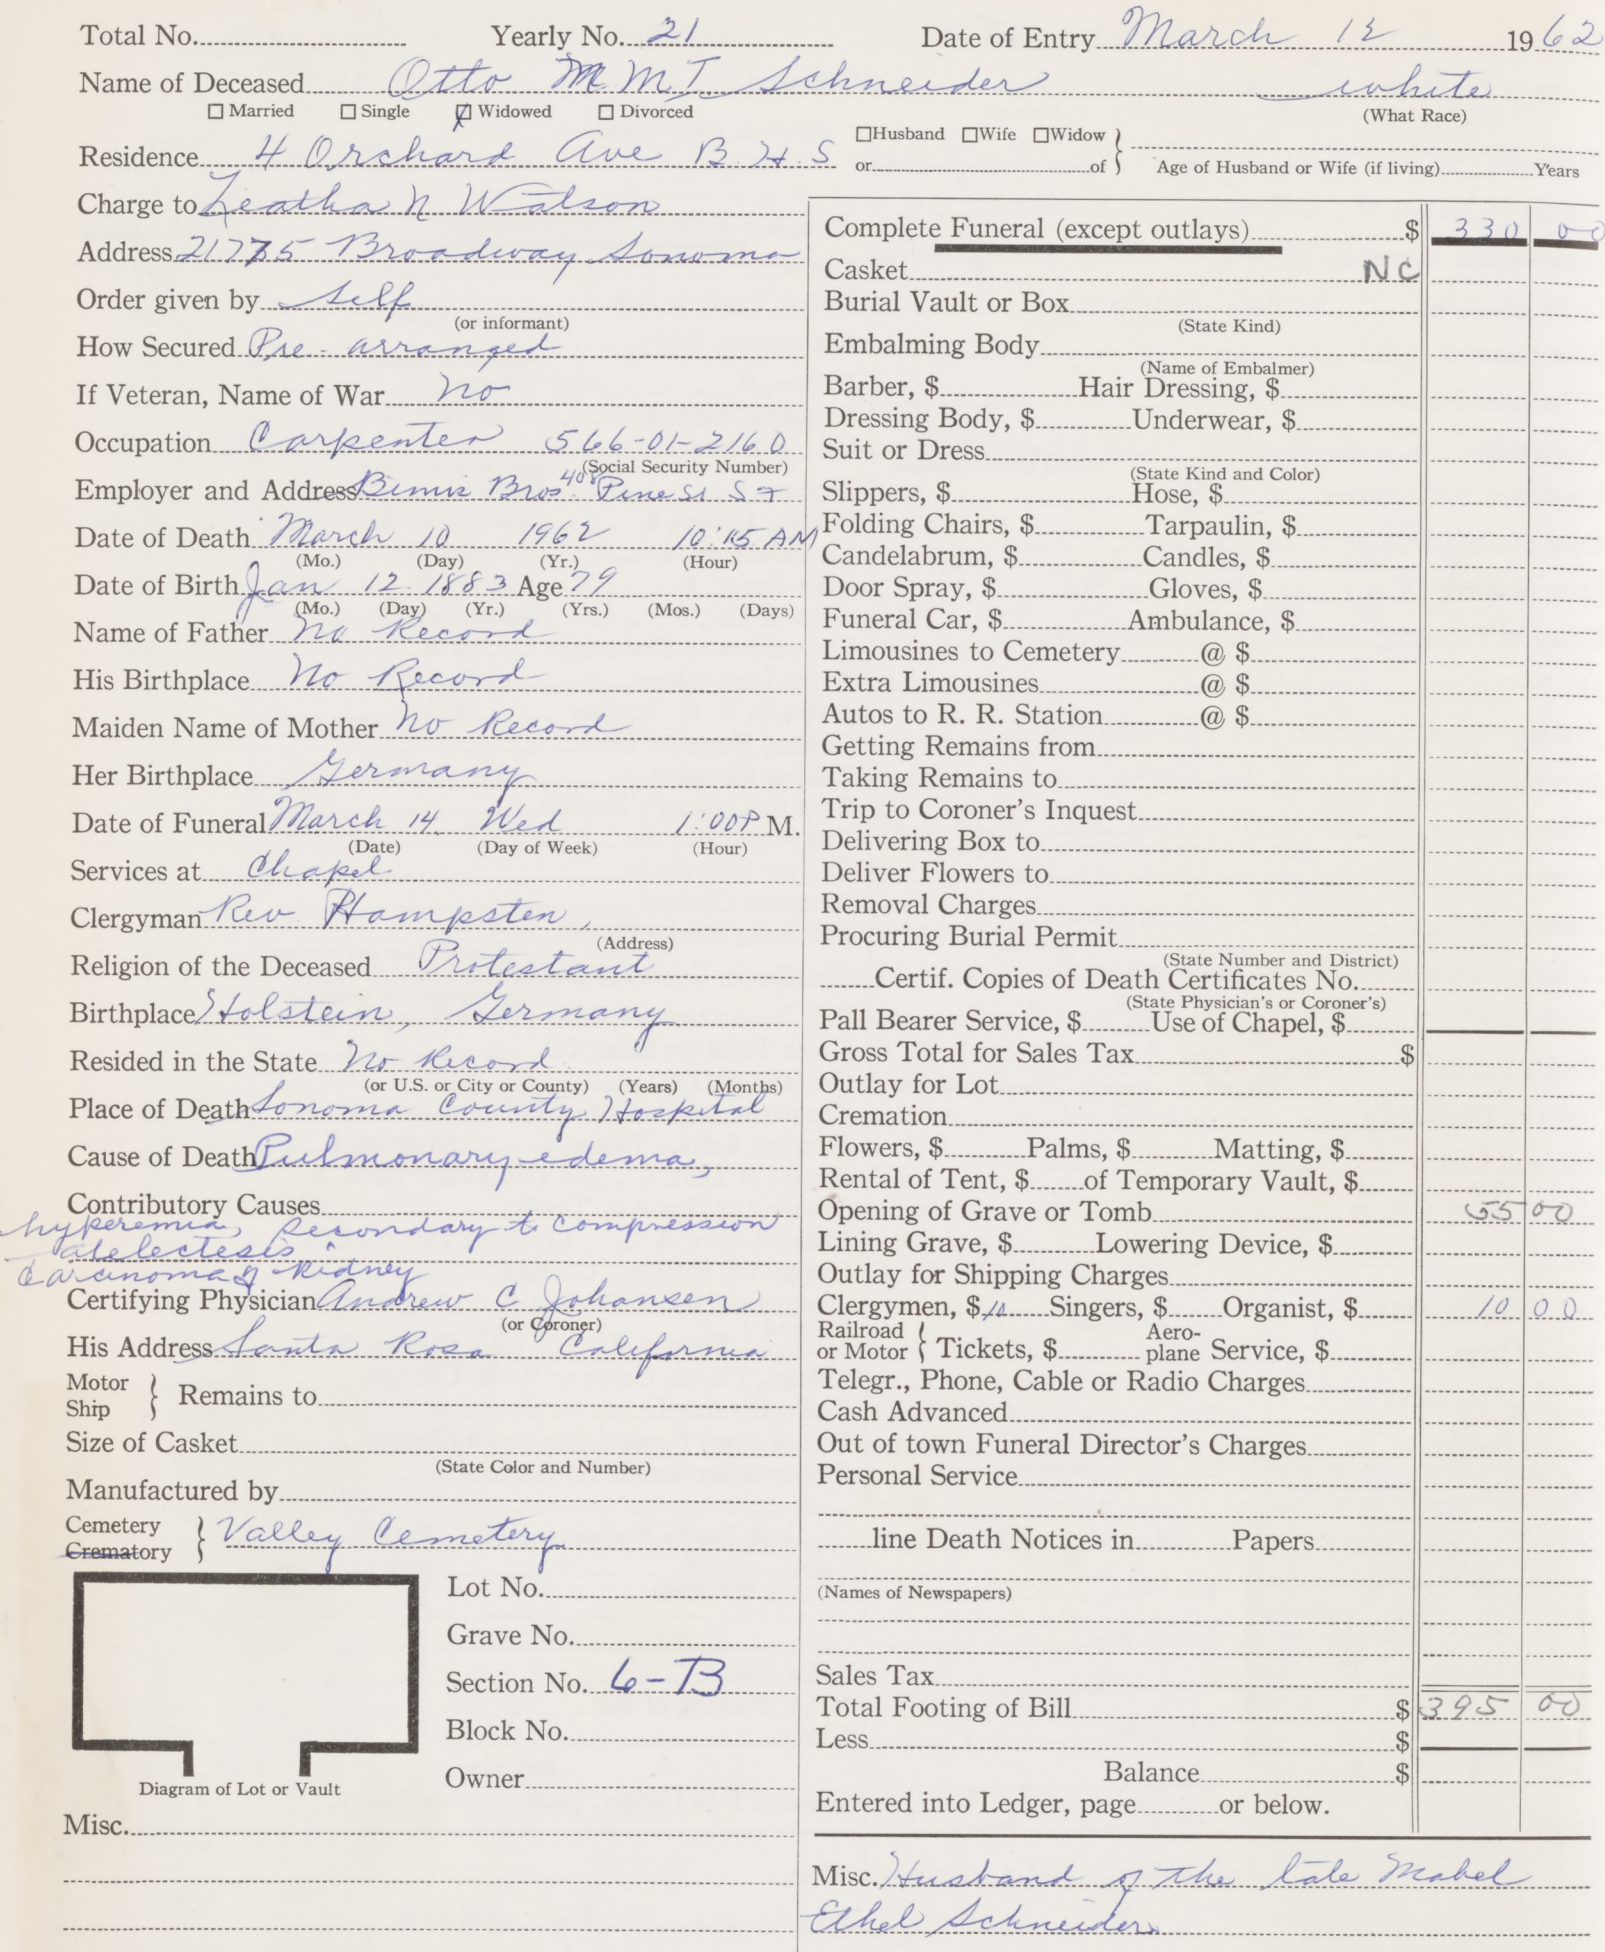 Total No. Yearly No. 21 Date of Entry March 12 1962
Name of Deceased Otto M M T Schneider white
☐ Married ☐ Single ☑ Widowed ☐ Divorced (What Race)
Residence 4 Orchard Ave B. H. S
☐ Husband ☐ Wife ☐ Widow }
or of } Age of Husband or Wife (if living) Years
Charge to Leatha N Watson
Address 21775 Broadway Sonoma
Order given by Self
(or informant)
How Secured Pre-arranged
If Veteran, Name of War No
Occupation Carpenter 566-01-2160
(Social Security Number)
Employer and Address Bemis Bros. 408 Pine St S F
Date of Death March 10 1962 10:15 AM
(Mo.) (Day) (Yr.) (Hour)
Date of Birth Jan 12 1883 Age 79
(Mo.) (Day) (Yr.) (Yrs.) (Mos.) (Days)
Name of Father No Record
His Birthplace No Record
Maiden Name of Mother No Record
Her Birthplace Germany
Date of Funeral March 14 Wed 1:00 P M.
(Date) (Day of Week) (Hour)
Services at Chapel
Clergyman Rev Hampsten,
(Address)
Religion of the Deceased Protestant
Birthplace Holstein, Germany
Resided in the State No Record
(or U.S. or City or County) (Years) (Months)
Place of Death Sonoma County Hospital
Cause of Death Pulmonary edema,
Contributory Causes
hyperemia, secondary to compression
atelectesis
Carcinoma of Kidney
Certifying Physician Andrew C Johansen
(or Coroner)
His Address Santa Rosa California
Motor
Ship } Remains to
Size of Casket
(State Color and Number)
Manufactured by
Cemetery
Crematory } Valley Cemetery
Lot No.
Grave No.
Section No. 6-B
Block No.
Owner
Diagram of Lot or Vault
Misc.
Complete Funeral (except outlays) $ 330 00
Casket NC
Burial Vault or Box
(State Kind)
Embalming Body
(Name of Embalmer)
Barber, $ Hair Dressing, $
Dressing Body, $ Underwear, $
Suit or Dress
(State Kind and Color)
Slippers, $ Hose, $
Folding Chairs, $ Tarpaulin, $
Candelabrum, $ Candles, $
Door Spray, $ Gloves, $
Funeral Car, $ Ambulance, $
Limousines to Cemetery @ $
Extra Limousines @ $
Autos to R. R. Station @ $
Getting Remains from
Taking Remains to
Trip to Coroner's Inquest
Delivering Box to
Deliver Flowers to
Removal Charges
Procuring Burial Permit
(State Number and District)
Certif. Copies of Death Certificates No.
(State Physician's or Coroner's)
Pall Bearer Service, $ Use of Chapel, $
Gross Total for Sales Tax $
Outlay for Lot
Cremation
Flowers, $ Palms, $ Matting, $
Rental of Tent, $ of Temporary Vault, $
Opening of Grave or Tomb 55 00
Lining Grave, $ Lowering Device, $
Outlay for Shipping Charges
Clergymen, $ 10 Singers, $ Organist, $ 10 00
Railroad
or Motor } Tickets, $ Aero-
plane Service, $
Telegr., Phone, Cable or Radio Charges
Cash Advanced
Out of town Funeral Director's Charges
Personal Service
line Death Notices in Papers
(Names of Newspapers)
Sales Tax
Total Footing of Bill $ 395 00
Less $
Balance $
Entered into Ledger, page or below.
Misc. Husband of the late Mabel
Ethel Schneider